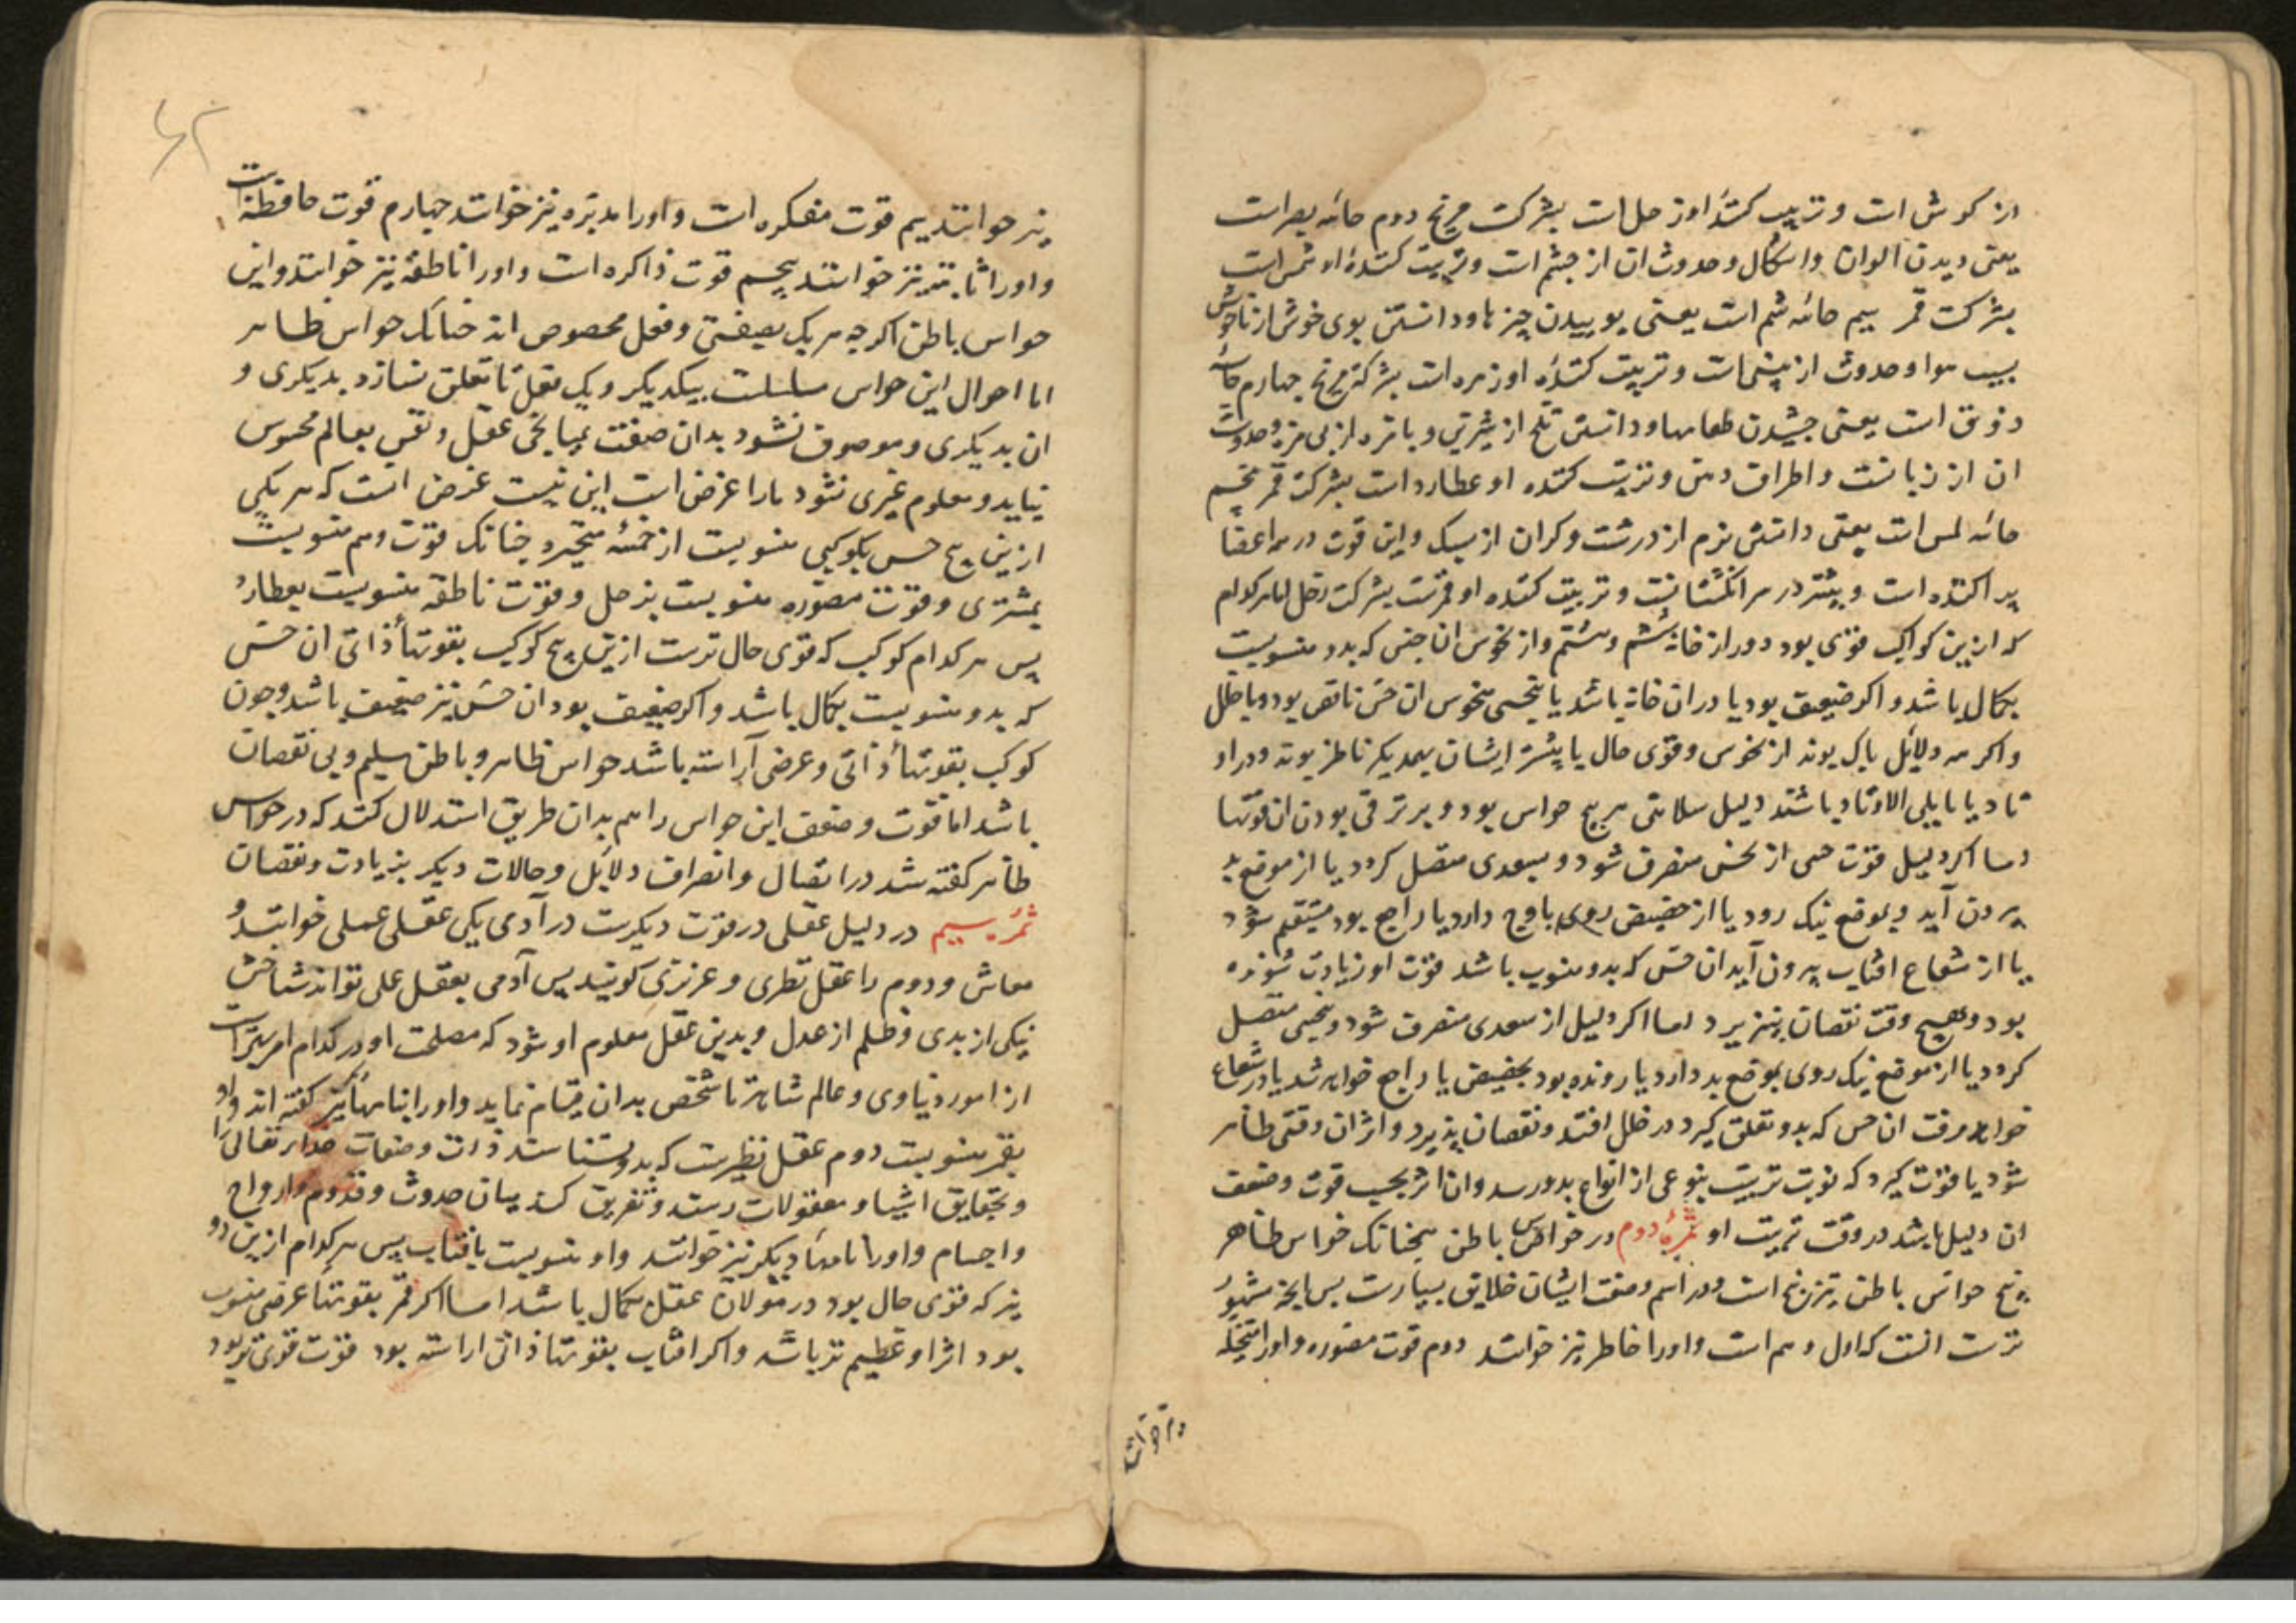 از کوش است و تربیت کنندهٔ او زحل است بشرکت مریخ دوم حاسه بصر است
یعنی دیدن الوان و اشکال و حدوث ان از چشم است و تربیت کنندهٔ او شمس است
بشرکت قمر سیم حاسه شم است یعنی بوییدن چیزها و دانستن بوی خوش از ناخوش
بسبب هوا و حدوث از بینی است و تربیت کننده او زهره است بشرکت مریخ چهارم حاسهٔ
ذوق است یعنی چشیدن طعامها و دانستن تلخ از شیرین و بامزه از بی مزه و حدوث
ان از زبانست و اطراف دهن و تربیت کننده او عطارد است بشرکت قمر پنجم
حاسه لمس است یعنی دانستن نرم از درشت و کران از سبک و این قوت در همه اعضا
پراکنده است و بیشتر در سر انکشتانست و تربیت کننده او قمرست بشرکت زحل اما هر کدام
که ازین کواکب قوی بود و دور از خانهٔ ششم و هشتم و از نحوس ان حس که بدو منسوبست
بکمال باشد و اکر ضعیف بود یا در ان خانه باشد یا بنحسی منحوس ان حس ناقص بود و با خلل
و اکر همه دلایل پاک بوند از نحوس و قوی حال یا بیشتر ایشان بیکدیکر ناظر بوند و در او
تاد یا مایلی الاوتاد باشند دلیل سلامتی هر پنج حواس بود و بر ترقی بودن ان قوتها
و اما اکر دلیل قوت حسی از نحس منصرف شود و بسعدی متصل کردد یا از موضع بد
بیرون آید و بموضع نیک رود یا از حضیض روی باوج دارد یا راجع بود مستقیم شود
یا از شعاع افتاب بیرون آید ان حس که بدو منسوب باشد قوت او زیادت شونده
بود و بهیچ وقت نقصان نپذیرد اما اکر دلیل از سعدی منصرف شود و بنحسی متصل
کردد یا از موضع نیک روی بموضع بد دارد یا رونده بود بحضیض یا راجع خواهد شد یا در شعاع
خواهد رفت ان حس که بدو تعلق کیرد در خلل افتد و نقصان پذیرد و اثر ان وقتی ظاهر
شود یا قوت کیرد که نوبت تربیت بنوعی از انواع بدو رسد و ان اثر بحسب قوت و ضعف
ان دلیل باشد در وقت تربیت او ثمرهٔ دوم در حواس باطن همچنانک حواس ظاهر
پنج حواس باطن نیز پنج است و در اسم و صفت ایشان خلایق بسیارست پس انچه مشهور
ترست انست که اول وهم است و او را خاطر نیز خوانند دوم قوت مصوره و او را متخیله
نیز خوانند
نیز خوانند سیم قوت مفکره است و او را مدبره نیز خوانند چهارم قوت حافظه است
و او را ثابته نیز خوانند پنجم قوت ذاکره است و او را ناطقه نیز خوانند و این
حواس باطن اکرچه هر یک بصفتی و فعلی مخصوص اند چنانک حواس ظاهر
اما احوال این حواس مسلسلست بیکدیکر و یک فعل تا تعلق نسازد بدیکری و
ان بدیکری و موصوف نشود بدان صفت بمیانجی عقل و نفس بعالم محسوس
نیاید و معلوم غیری نشود ما را غرض ازین نیست غرض انست که هر یکی
ازین پنج حس بکوکبی منسوبست از خمسهٔ متحیره چنانک قوت وهم منسوبست
بمشتری و قوت مصوره منسوبست بزحل و قوت ناطقه منسوبست بعطارد
پس هر کدام کوکب که قوی حال ترست ازین پنج کوکب بقوتهاء ذاتی ان حس
که بدو منسوبست بکمال باشد و اکر ضعیف بود ان حس نیز ضعیف باشد و چون
کوکب بقوتهاء ذاتی و عرضی آراسته باشد حواس ظاهر و باطن سلیم و بی نقصان
باشد اما قوت و ضعف این حواس را هم بدان طریق استدلال کنند که در حواس
ظاهر کفته شد در اتصال و انصراف دلایل و حالات دیکر بزیادت و نقصان
ثمره سیم در دلیل عقلی در قوت دیکرست در آدمی یکی عقلی عملی خوانند و
معاش و دوم را عقل نظری و غریزی کویند پس آدمی بعقل عملی تواند شناختن
نیکی از بدی و ظلم از عدل و بدین عقل معلوم او شود که مصلحت او در کدام امریست
از امور دنیاوی و عالم شاهد تا شخص بدان قیام نماید و او را بنامها نیز کفته اند و او
بقمر منسوبست دوم عقل نظریست که بدو بشناسند ذات و صفات خدای تعالی را
و بحقایق اشیا و معقولات رسند و تفریق کند میان حدوث و قدوم و ارواح
و اجسام و او را نامهاء دیکر نیز خوانند و او منسوبست بافتاب پس هر کدام ازین دو
نیز که قوی حال بود در عقل بکمال باشد اما اکر قمر بقوتهاء عرضی منسوب
بود اثر او عظیم تر باشد و اکر افتاب بقوتهاء ذاتی اراسته بود قوت قوی تر بود